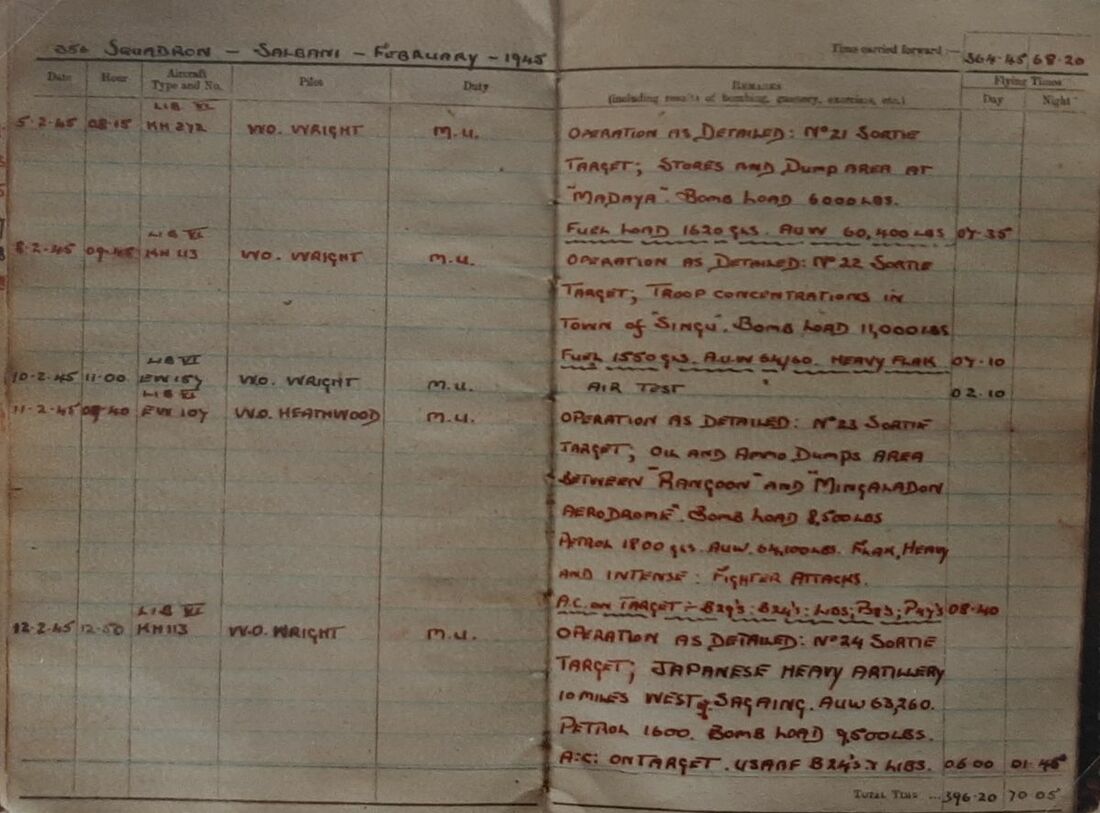 356 SQUADRON - SALBANI - FEBRUARY - 1945
Time carried forward :- 364·45 68·20
Date Hour Aircraft Type and No. Pilot Duty REMARKS (including results of bombing, gunnery, exercises, etc.) Flying Times
Day Night
LIB VI
5·2·45 08·15 KH 272 WO. WRIGHT M.U. OPERATION AS DETAILED: No 21 SORTIE
TARGET; STORES AND DUMP AREA AT
"MADAYA". BOMB LOAD 6000 LBS.
LIB VI FUEL LOAD 1620 GLS. AUW 60,400 LBS 07·35
8·2·45 09·45 KH 113 WO. WRIGHT M.U. OPERATION AS DETAILED: No 22 SORTIE
TARGET; TROOP CONCENTRATIONS IN
TOWN of "SINGU". BOMB LOAD 11,000 LBS
LIB VI FUEL 1550 GLS. A.U.W 64,160. HEAVY FLAK 07·10
10·2·45 11·00 EW 157 WO. WRIGHT M.U. AIR TEST 02·10
LIB VI
11·2·45 EW 107 W.O. HEATHWOOD M.U. OPERATION AS DETAILED: No 23 SORTIE
TARGET; OIL AND AMMO DUMPS AREA
BETWEEN "RANGOON" AND "MINGALADON
AERODROME". BOMB LOAD 8,500 LBS
PETROL 1800 GLS. AUW. 64,100 LBS. FLAK, HEAVY
AND INTENSE: FIGHTER ATTACKS.
LIB VI A.C. ON TARGET :- B29's: B24's: LIBS; P38's; P47's 08·40
12·2·45 12·50 KH 113 W.O. WRIGHT M.U. OPERATION AS DETAILED: No 24 SORTIE
TARGET; JAPANESE HEAVY ARTILLERY
10 MILES WEST of SAGAING. AUW 63,260.
PETROL 1600. BOMB LOAD 9,500 LBS.
A:C: ON TARGET. USAAF B24's & LIBS. 06·00 01·45
TOTAL TIME ... 396·20 70·05